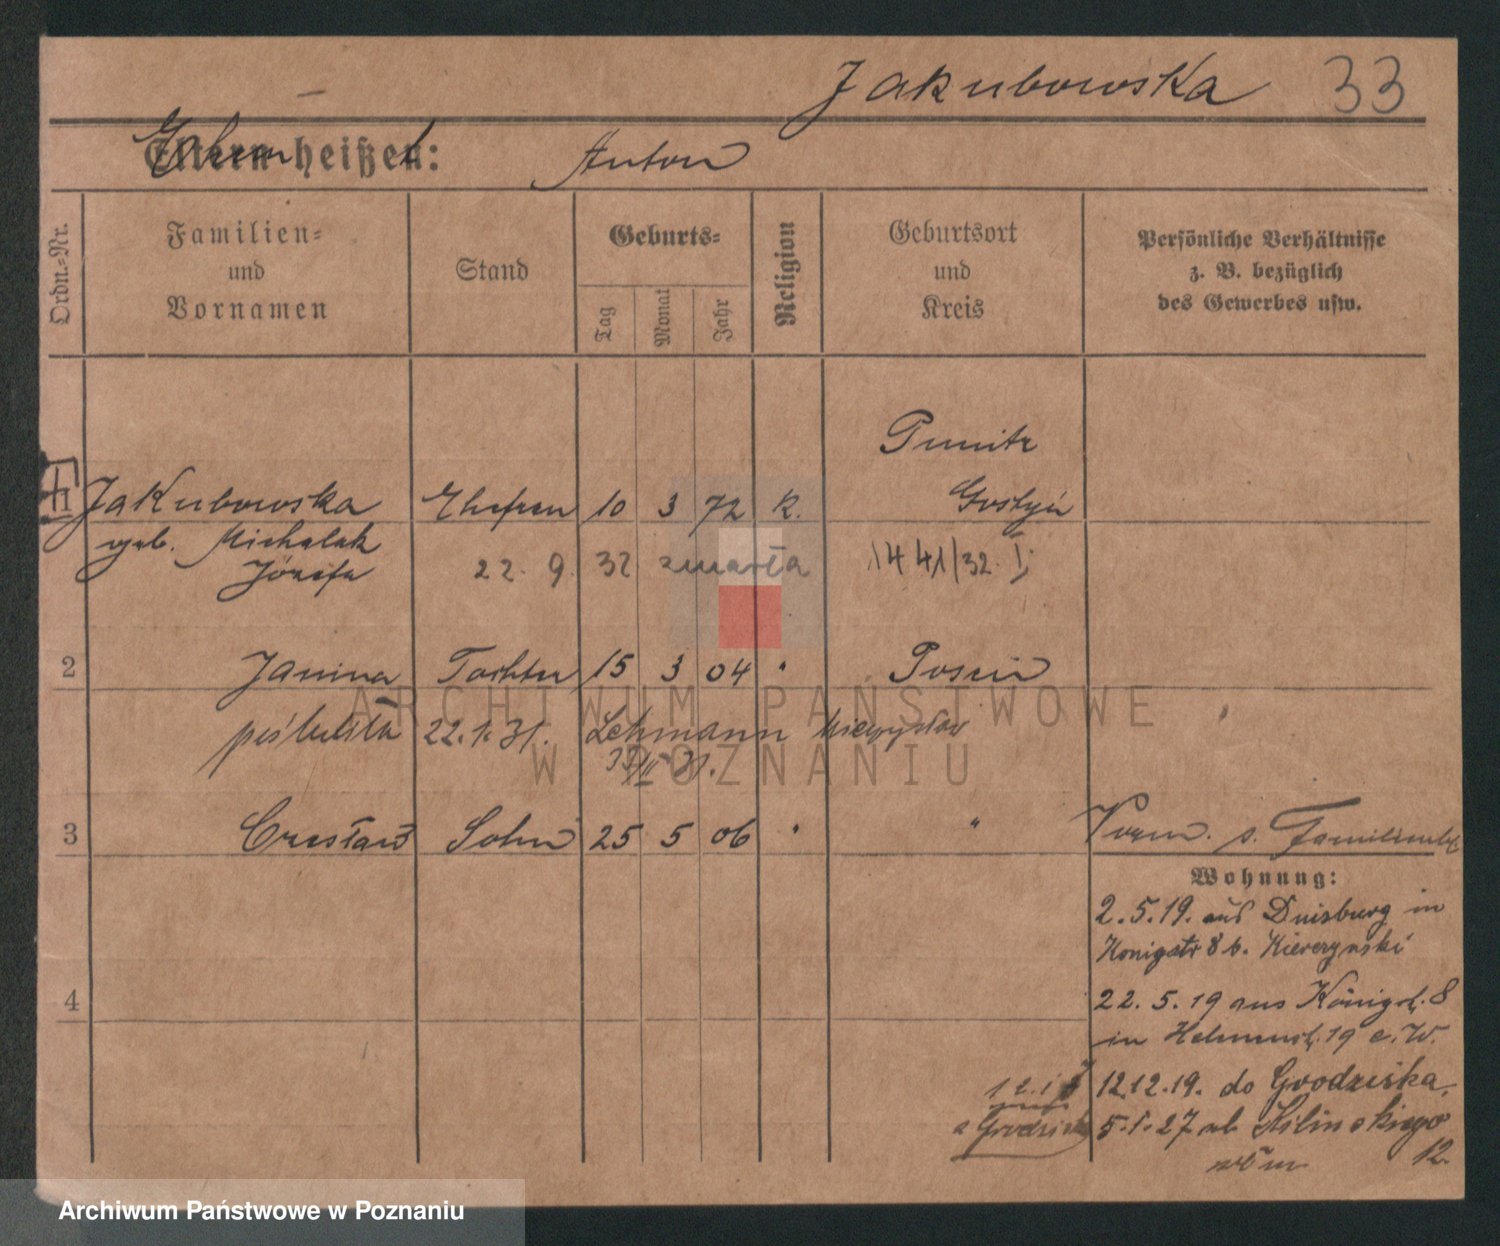 Jakubowska 33
Eltern heißen: Anton
Ordn.-Nr.
Familien-
und
Vornamen
Stand
Geburts-
Tag
Monat
Jahr
Religion
Geburtsort
und
Kreis
Persönliche Verhältnisse
z. B. bezüglich
des Gewerbes usw.
Punitz
1 Jakubowska Ehefrau 10 3 72 k. Gostyń
geb. Michalak
Józefa 22. 9 32 zmarła 1441/32 I
2 Janina Tochter 15 3 04 " Posen
poślubiła 22.1.31. Lehmann Mieczysław
3 Czesław Sohn 25 5 06 " "
Wohnung:
2.5.19. aus Duisburg in
Königstr 8 b.
22.5.19 aus Königstr. 8
in 19
4
12.12.19. do Grodziska
5.1.27 Kilińskiego
12
ARCHIWUM PAŃSTWOWE
W POZNANIU
Archiwum Państwowe w Poznaniu